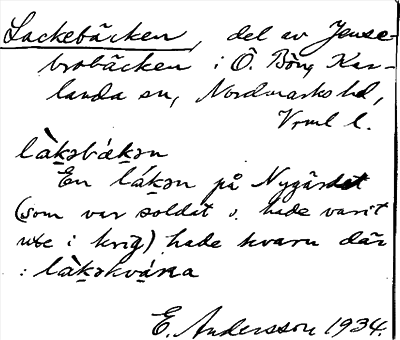 Lackebäcken, del av Jense-
brobäcken i Ö. Bön, Kar-
landa sn, Nordmarks hd,
Vrml l.
làk̠əbæ̀k̠ən
En lák̠ən på Nygårdet
(som var soldat o. hade varit
ute i krig) hade kvarn där
: làk̠əkvàṇa
E. Andersson 1934.